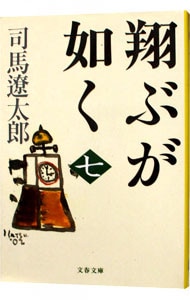 翔ぶが
如く
七
司馬遼太郎
文春文庫